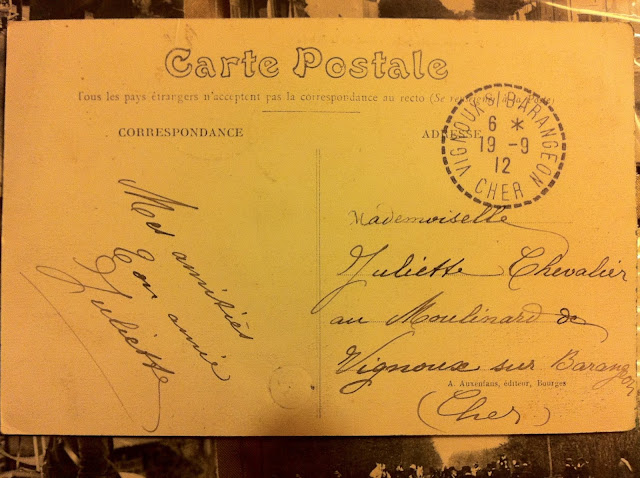 Carte Postale
Tous les pays étrangers n'acceptent pas la correspondance au recto (Se renseigner à la Poste)
CORRESPONDANCE
ADRESSE
VIGNOUX S/ BARANGEON
6 *
19 -9
12
CHER
Mes amitiés
Ton amie
Juliette
Mademoiselle
Juliette Chevalier
au Moulinard de
Vignoux sur Barangeon
A. Auxenfans, éditeur, Bourges
(Cher)